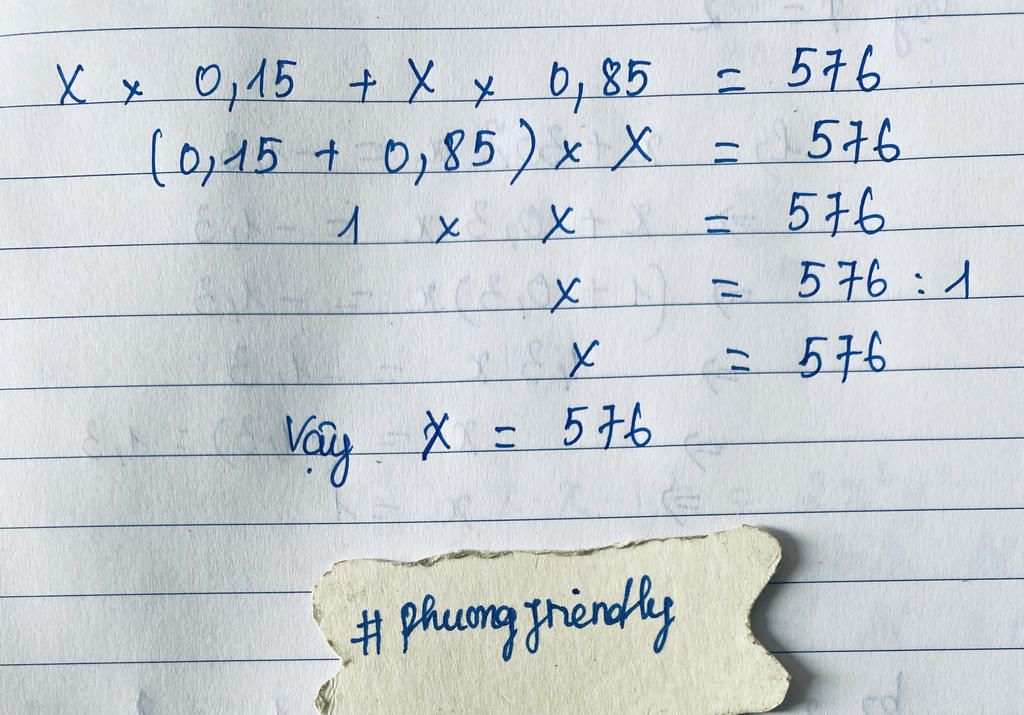 X x 0,15 + X x 0,85 = 576
(0,15 + 0,85) x X = 576
1 x X = 576
x = 576 : 1
x = 576
Vậy X = 576
# phuong friendly